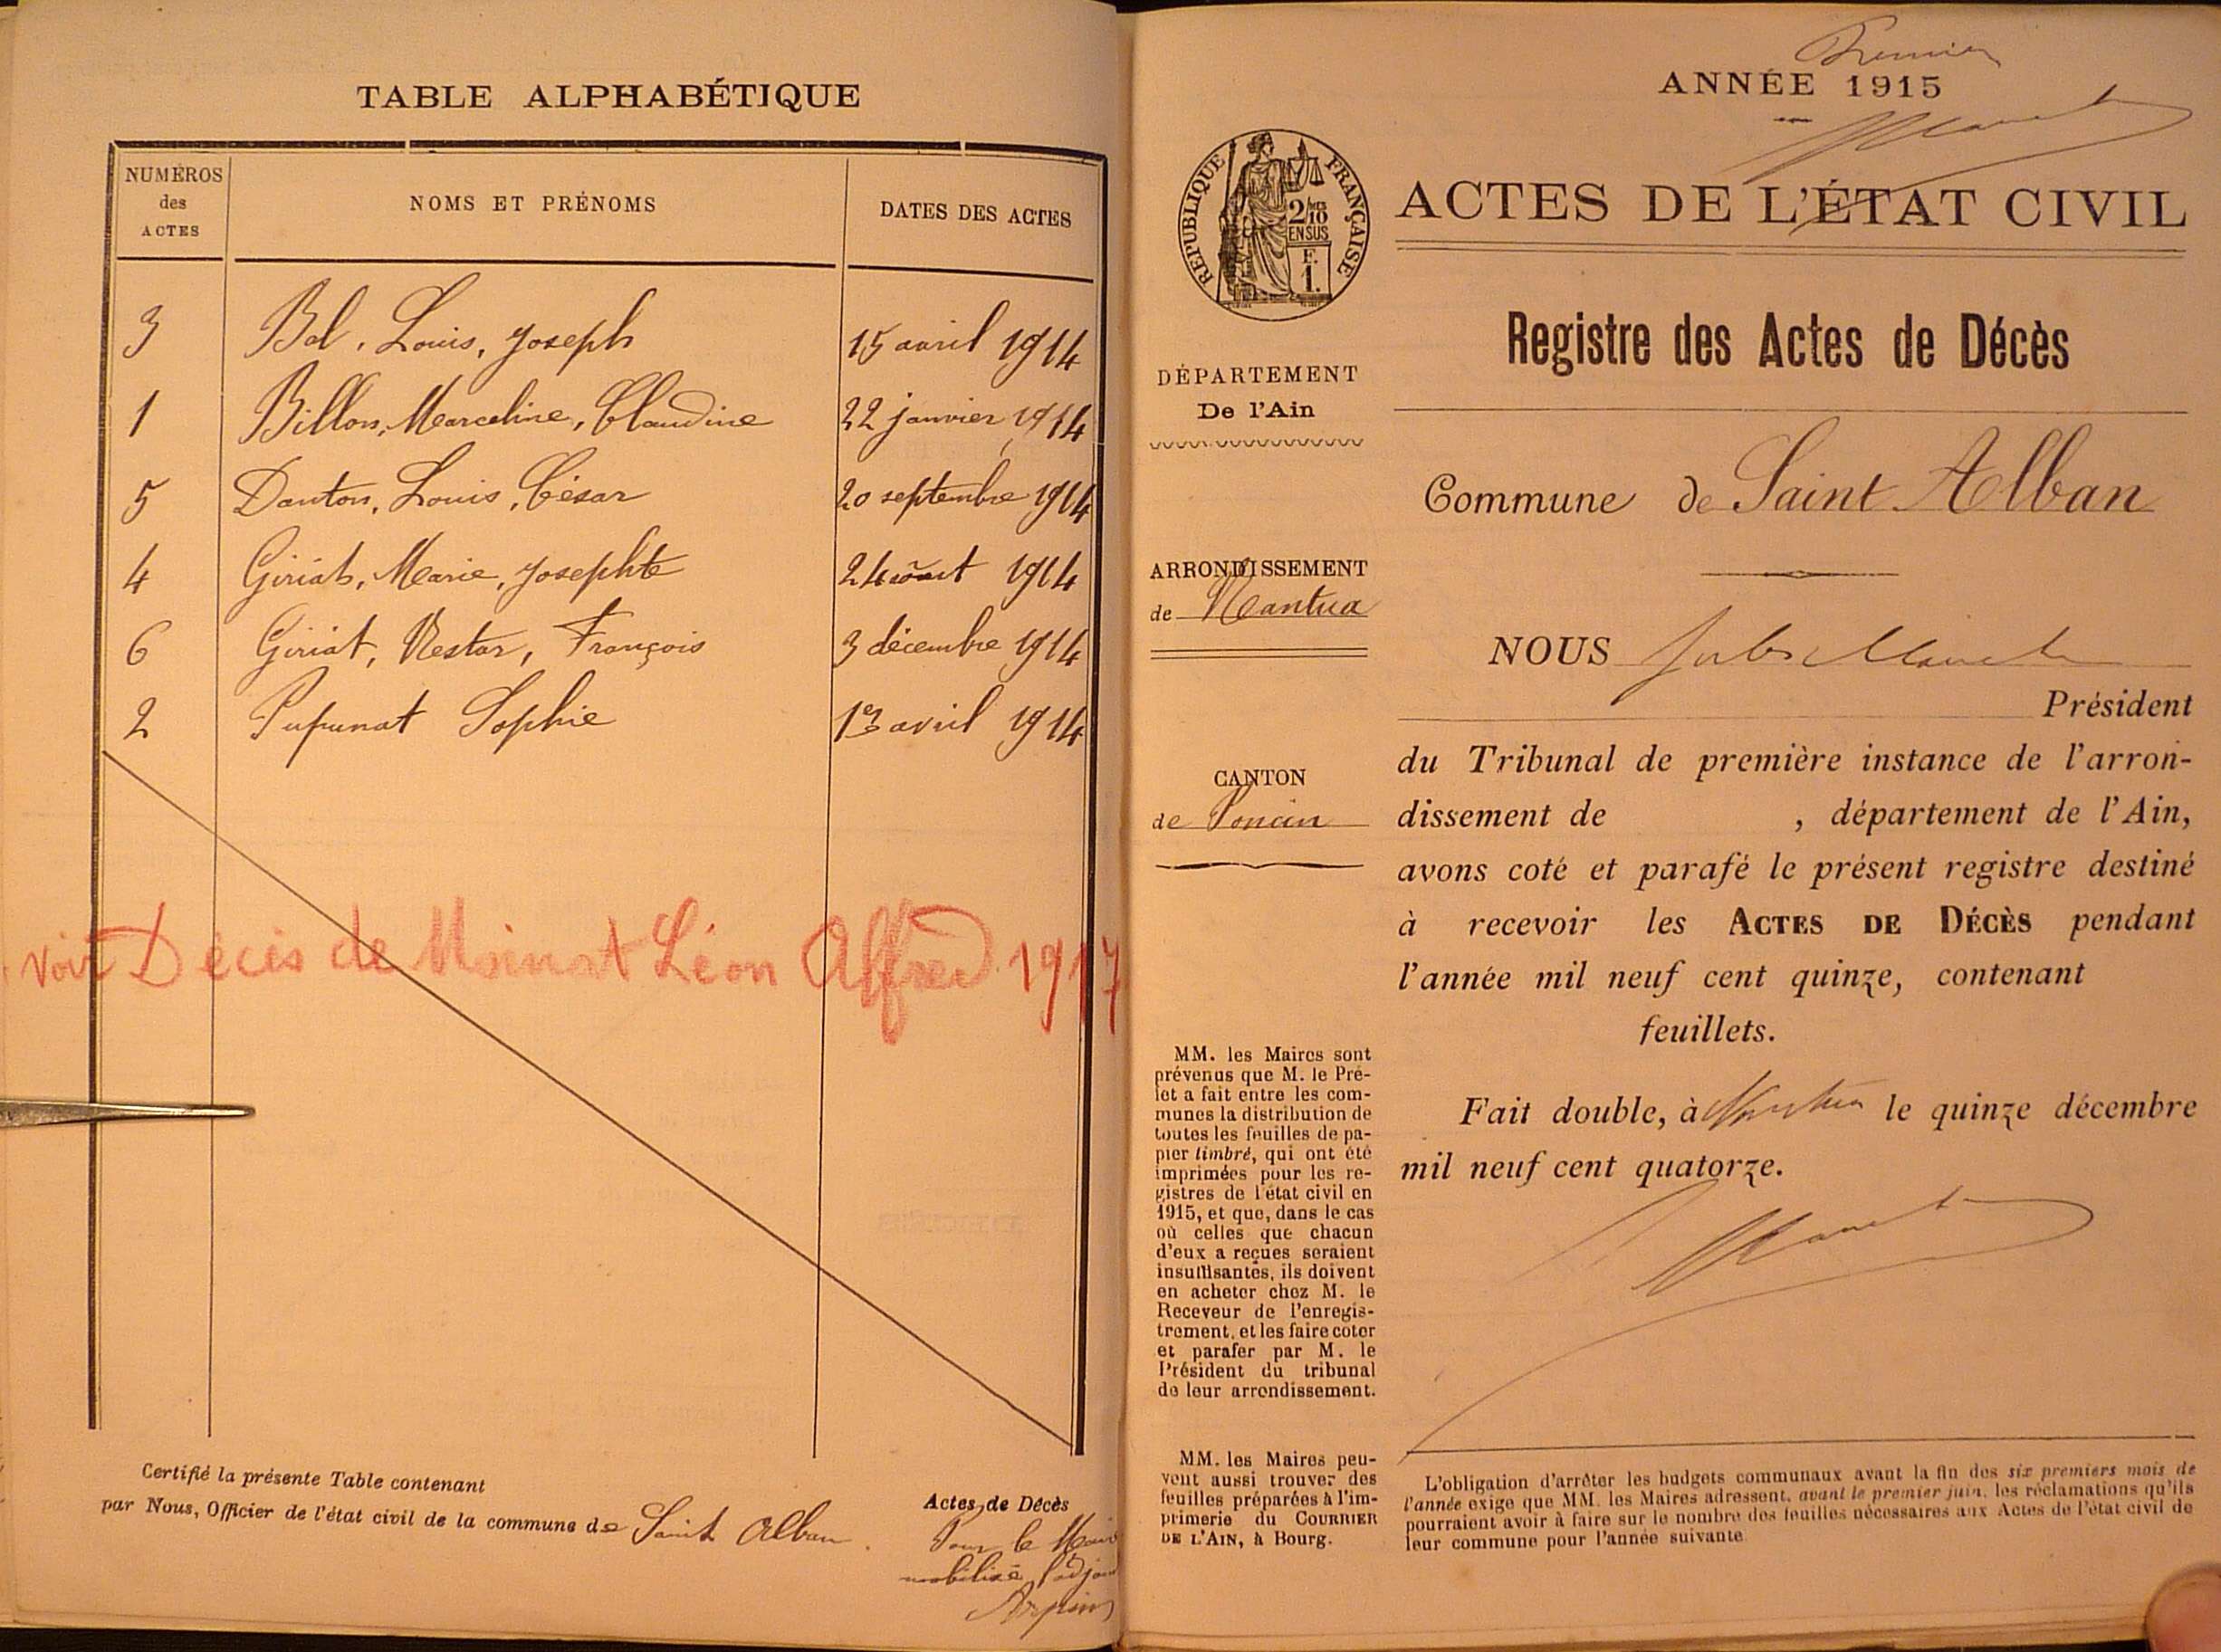 TABLE ALPHABÉTIQUE
NUMÉROS des ACTES NOMS ET PRÉNOMS DATES DES ACTES
3 Bol, Louis, Joseph 15 avril 1914
1 Billon, Marceline, Claudine 22 janvier 1914
5 Danton, Louis, César 20 septembre 1914
4 Giriat, Marie, Josephte 24 août 1914
6 Giriat, Nestor, François 3 décembre 1914
2 Pupunat Sophie 1er avril 1914
voir Décès de Moinat Léon Alfred 1917
Certifié la présente Table contenant Actes de Décès
par Nous, Officier de l'état civil de la commune de Saint Alban
Pour le Maire
mobilisé, l'adjoint
Arpin
Premier
ANNÉE 1915
ACTES DE L'ÉTAT CIVIL
RÉPUBLIQUE FRANÇAISE
2/10 EN SUS
F. 1.
Registre des Actes de Décès
DÉPARTEMENT
De l'Ain
Commune de Saint Alban
ARRONDISSEMENT
de Nantua
NOUS Jules
Président
du Tribunal de première instance de l'arron-
dissement de , département de l'Ain,
avons coté et parafé le présent registre destiné
à recevoir les ACTES DE DÉCÈS pendant
l'année mil neuf cent quinze, contenant
feuillets.
Fait double, à Nantua le quinze décembre
mil neuf cent quatorze.
CANTON
de Poncin
MM. les Maires sont
prévenus que M. le Pré-
fet a fait entre les com-
munes la distribution de
toutes les feuilles de pa-
pier timbré, qui ont été
imprimées pour les re-
gistres de l'état civil en
1915, et que, dans le cas
où celles que chacun
d'eux a reçues seraient
insuffisantes, ils doivent
en acheter chez M. le
Receveur de l'enregis-
trement, et les faire coter
et parafer par M. le
Président du tribunal
de leur arrondissement.
MM. les Maires peu-
vent aussi trouver des
feuilles préparées à l'im-
primerie du COURRIER
DE L'AIN, à Bourg.
L'obligation d'arrêter les budgets communaux avant la fin des six premiers mois de
l'année exige que MM. les Maires adressent, avant le premier juin, les réclamations qu'ils
pourraient avoir à faire sur le nombre des feuilles nécessaires aux Actes de l'état civil de
leur commune pour l'année suivante